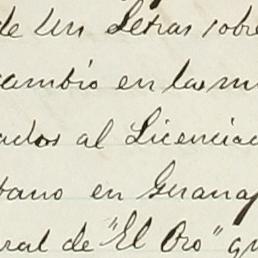 de un Letras sobre
cambio en la m
ados al Licenciad
bano en Guana
ral de "El Oro" qu